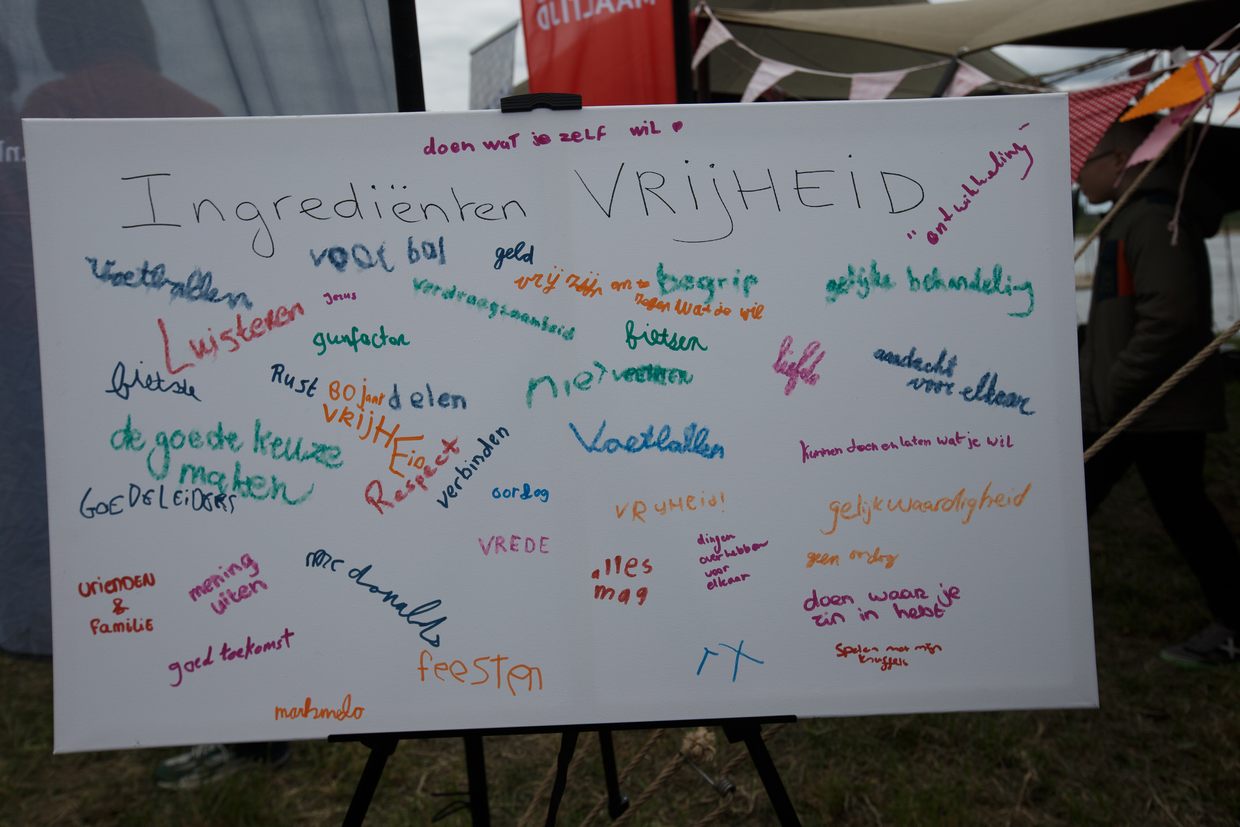 MAALTIJD
doen wat je zelf wil
Ingrediënten VRIJHEID
"ontwikkeling"
voetballen
voor bal
geld
vrij zijn om te
zegen wat je wil
begrip
gelijke behandeling
Luisteren
Jesus
verdraagzaamheid
gunfactor
fietsen
liefde
aandacht
voor elkaar
fietse
Rust
80 jaar
VRIJHEID
delen
niet
de goede keuze
maken
Respect
verbinden
Voetballen
kunnen doen en laten wat je wil
GOEDE LEIDERS
oorlog
VRYHEID!
gelijkwaardigheid
VREDE
dingen
over hebben
voor
elkaar
geen oorlog
VRIENDEN
&
FAMILIE
mening
uiten
mc donalds
alles
mag
doen waar je
zin in hebt
goed toekomst
feesten
rx
Spelen met mijn
knuffels